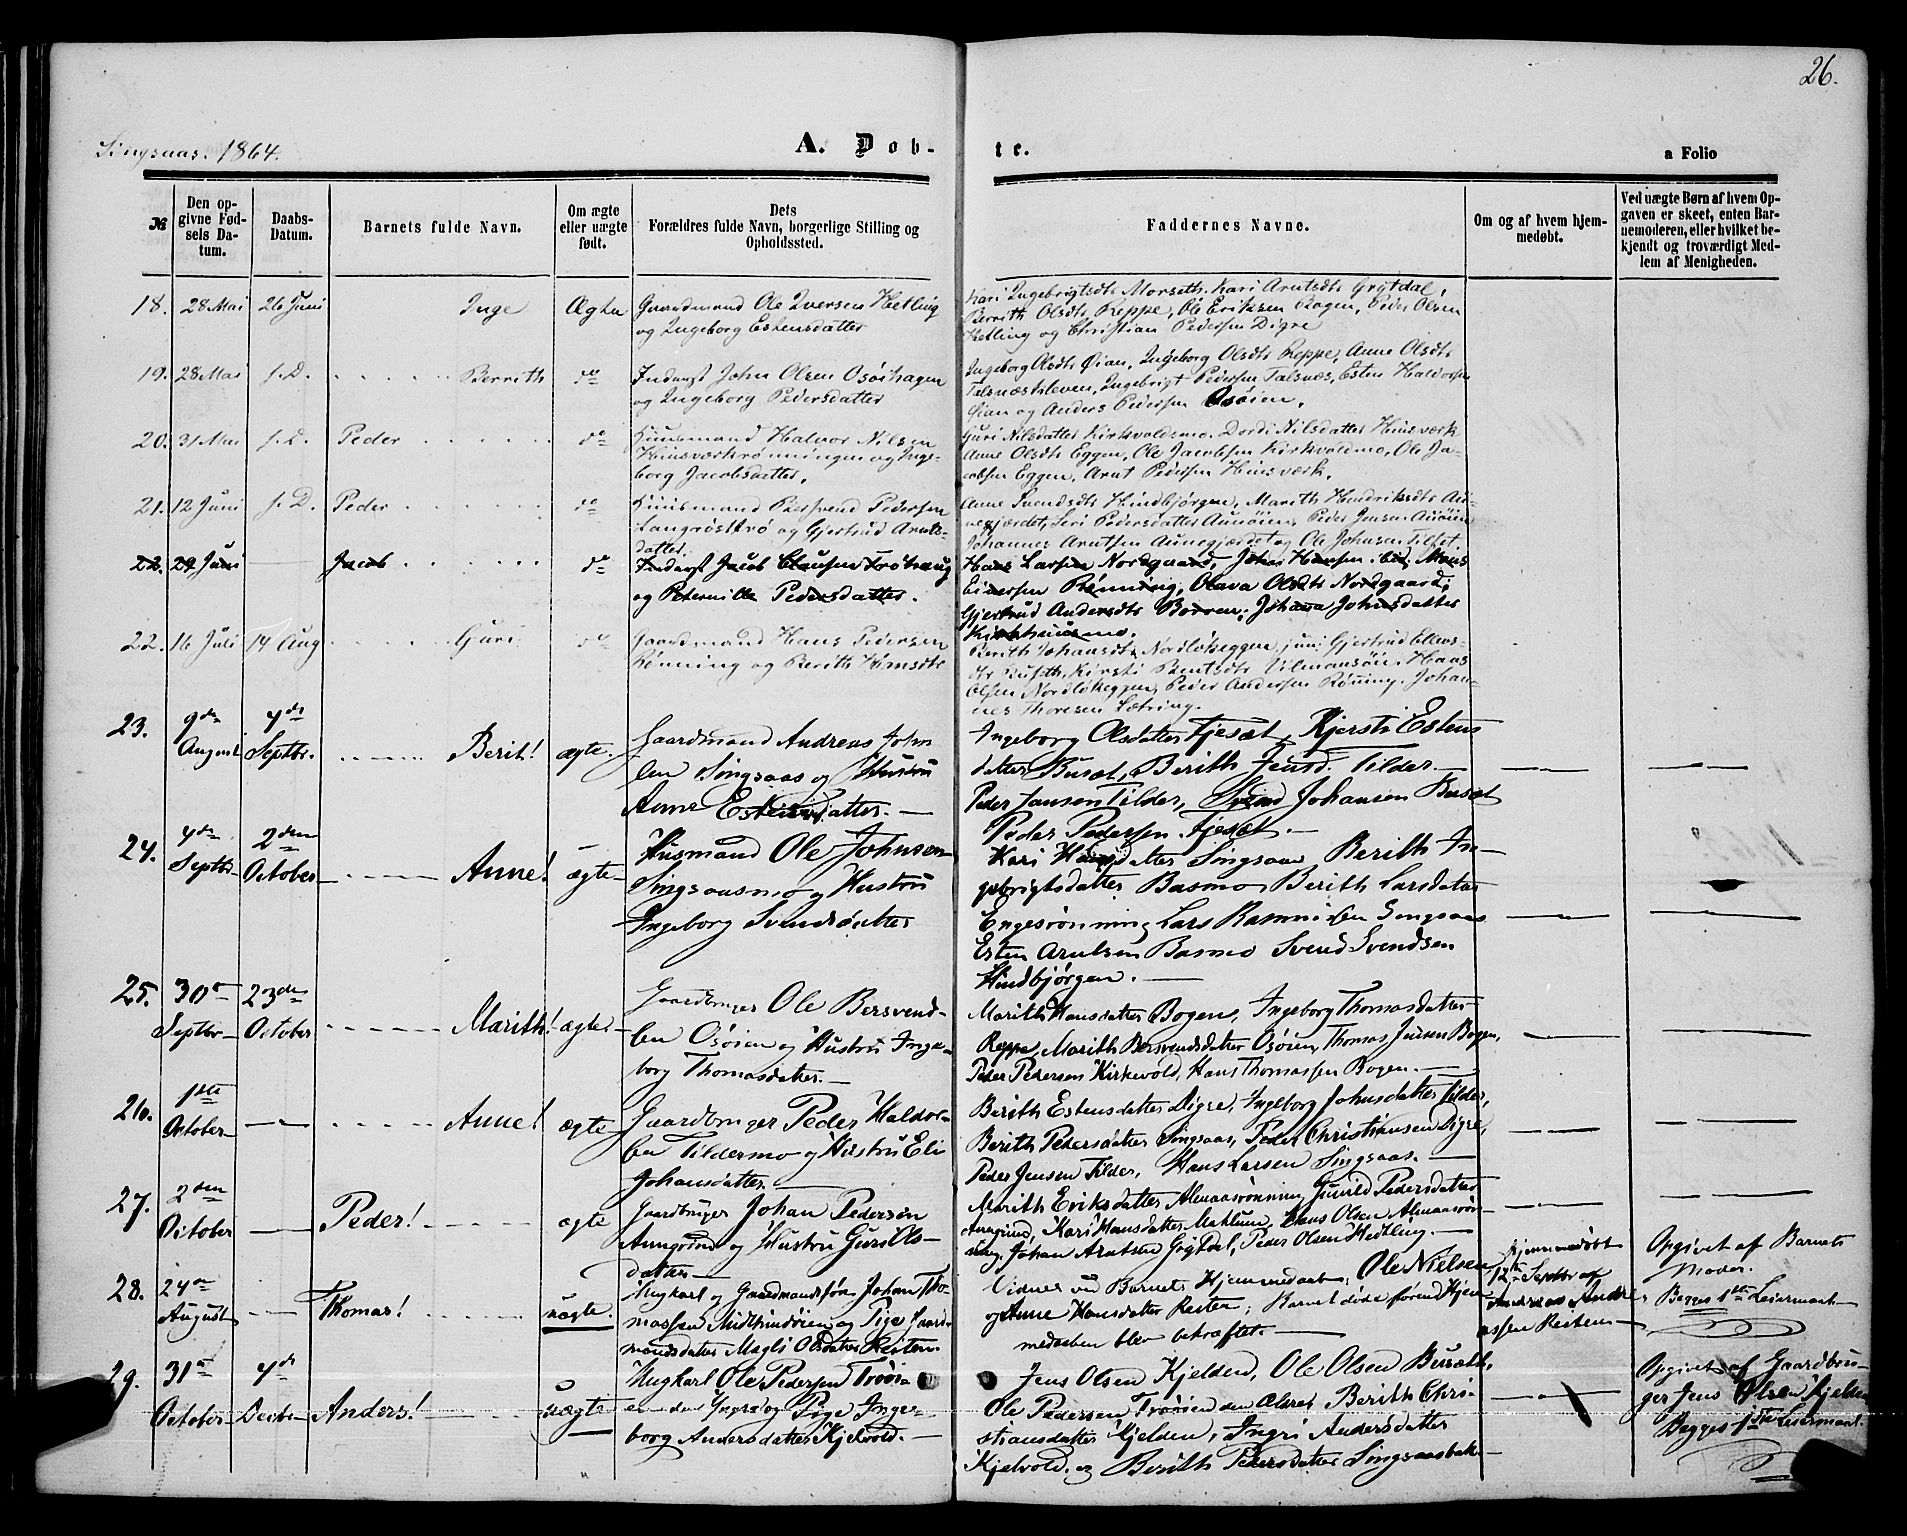 26.
Singsaas. 1864.
A. Døb-
te.
a Folio
№
Den op-
givne Fød-
sels Da-
tum.
Daabs-
Datum.
Barnets fulde Navn.
Om ægte
eller uægte
født.
Dets
Forældres fulde Navn, borgerlige Stilling og
Opholdssted.
Faddernes Navne.
Om og af hvem hjem-
medøbt.
Ved uægte Børn af hvem Op-
gaven er skeet, enten Bar-
nemoderen, eller hvilket be-
kjendt og troværdigt Med-
lem af Menigheden.
18. 28 Mai 26 Juni Inge Ægte
Gaardmand Ole Iversen Hetling
og Ingeborg Estensdatter
Kari Ingebrigtsdt Morseth, Kari Arntsdt Grytdal,
Berrith Olsdt Reppe, Ole Eriksen Bogen, Peder Olsen
Hetling og Christian Pedersen Digre
19. 28 Mai s. D. Berrith do
Inderst John Olsen Osøihagen
og Ingeborg Pedersdatter
Ingeborg Olsdt Øian, Ingeborg Olsdt Reppe, Anne Olsdt
Talsnæskleven, Ingebrigt Pedersen Talsnæs, Esten Haldorsen
Øian og Anders Pedersen Osøien.
20. 31 Mai s. D. Peder do
Huusmand Halvor Nilsen
Hinsværkrønningen og Inge-
borg Jacobsdatter.
Guri Nilsdatter Kirkvoldsmo. Dordi Nilsdatter Hinsværk
Anne Olsdt Eggen, Ole Jacobsen Kirkvoldmo, Ole Ja-
cobsen Eggen, Arnt Pedersen Hinsværk.
21. 12 Juni s. D. Peder do
Huusmand Bersvend Pedersen
Langrøsttrø og Gjertrud Arnts-
datter.
Anne Svendsdt Hindbjørgen, Marith Hendriksdt Au-
negjærdet, Siri Pedersdatter Aunøien, Peder Jensen Aunøien
Johannes Arntsen Aunegjærdet og Ole Johnsen Tilset
22. 29 Juni Jacob do
Inderst Jacob Clausen Trøhaug
og Peternille Pedersdatter.
Hans Larsen Nordgaard, Johan Hansen ibid, Mons
Einersen Rønning, Olava Olsdt Nordgaard,
Gjertrud Andersdt Borren, Johana Johnsdatter
Kirkhuusmo.
22. 16 Juli 14 Aug Guri do
Gaardmand Hans Pedersen
Rønning og Berith Hansdt
Berith Johansdt Nordløkeggen, jun: Gjertrud Ellevs-
dt Buseth, Kirsti Bentsdt Vilmansøn. Haas
Olsen Nordløkeggen, Peder Andersen Røning. Johan-
nes Thoresen Sætring.
23. 9de August 4de Septbr. Berit! ægte.
Gaardmand Andreas John
sen Singsaas og Hustru
Anne Estensdatter.
Ingeborg Olsdatter Fjesæt, Kjersti Estens
datter Busæt, Berith Jensd. Tilder.
Peder Jansen Tilder, Svend Johansen Busæt
Peder Pedersen Fjesæt.
24. 4de Septbr 2den October Anne! ægte
Husmand Ole Johnsen
Singsaasmo og Hustru
Ingeborg Svendsdatter
Kari Hansdatter Singsaas, Berith In-
gebrigtsdatter Basmo Berith Larsdatter
Engesrønning Lars Rasmusen Singsaas
Esten Arntsen Basmo Svend Svendsen
Hindbjørgen.
25. 30e Septbr 23de October Marith! ægte
Gaardbruger Ole Bersvend-
sen Osøien og Hustru Inge-
borg Thomasdatter.
Marith Hansdatter Bogen, Ingeborg Thomasdatter
Reppe, Marith Bersvendsdatter Osøien, Thomas Jensen Bogen,
Peder Pedersen Kirkevold, Hans Thomassen Bogen.
26. 1ste October Anne! ægte
Gaardbruger Peder Haldor-
sen Tildermo og Hustru Eli
Johansdatter.
Berith Estensdatter Digre, Ingeborg Johnsdatter Tilder,
Berith Pedersdatter Singsaas, Peder Christiansen Digre,
Peder Jensen Tilder, Hans Larsen Singsaas.
27. 2den October Peder! ægte
Gaardbruger Johan Pedersen
Aungrind og Hustru Guri Ols-
datter
Marith Eriksdatter Almaasrønning, Gunild Pedersdatter
Aungrind, Kari Hansdatter Moklund, Hans Olsen Almaasrøn-
ning, Johan Arntsen Grytdal, Peder Olsen Hetling.
28. 24de August Thomas! uægte.
Ungkarl og Gaardmandssøn Johan Tho-
massen Midthindøien og Pige Gaard-
mandsdatter Magli Olsdatter Reiten.
Vidner ved Barnets Hjemmedaab: Ole Nielsen
og Anne Hansdatter Reiten; Barnet døde førend Hjem-
medaaben blev bekræftet.
Hjemmedøbt
12te Septbr af
Andreas Andre-
assen Reiten
Opgivet af Barnets
Moder.
Begges 1ste Leiermaal
29. 31e October 4de Decbr Anders! uægte
Ungkarl Ole Pedersen Trøøi-
en den Yngre og Pige Inge-
borg Andersdatter Kjelvold.
Jens Olsen Kjelden, Ole Olsen Bersæth,
Ole Pedersen Trøøien den Ældre, Berith Chri-
stiansdatter Kjelden, Ingri Andersdatter
Kjelvold. og Berith Pedersdatter Singsaasbak
Opgivet af Gaardbru-
ger Jens Olsen Kjelden
Begges 1ste Leiermaal.